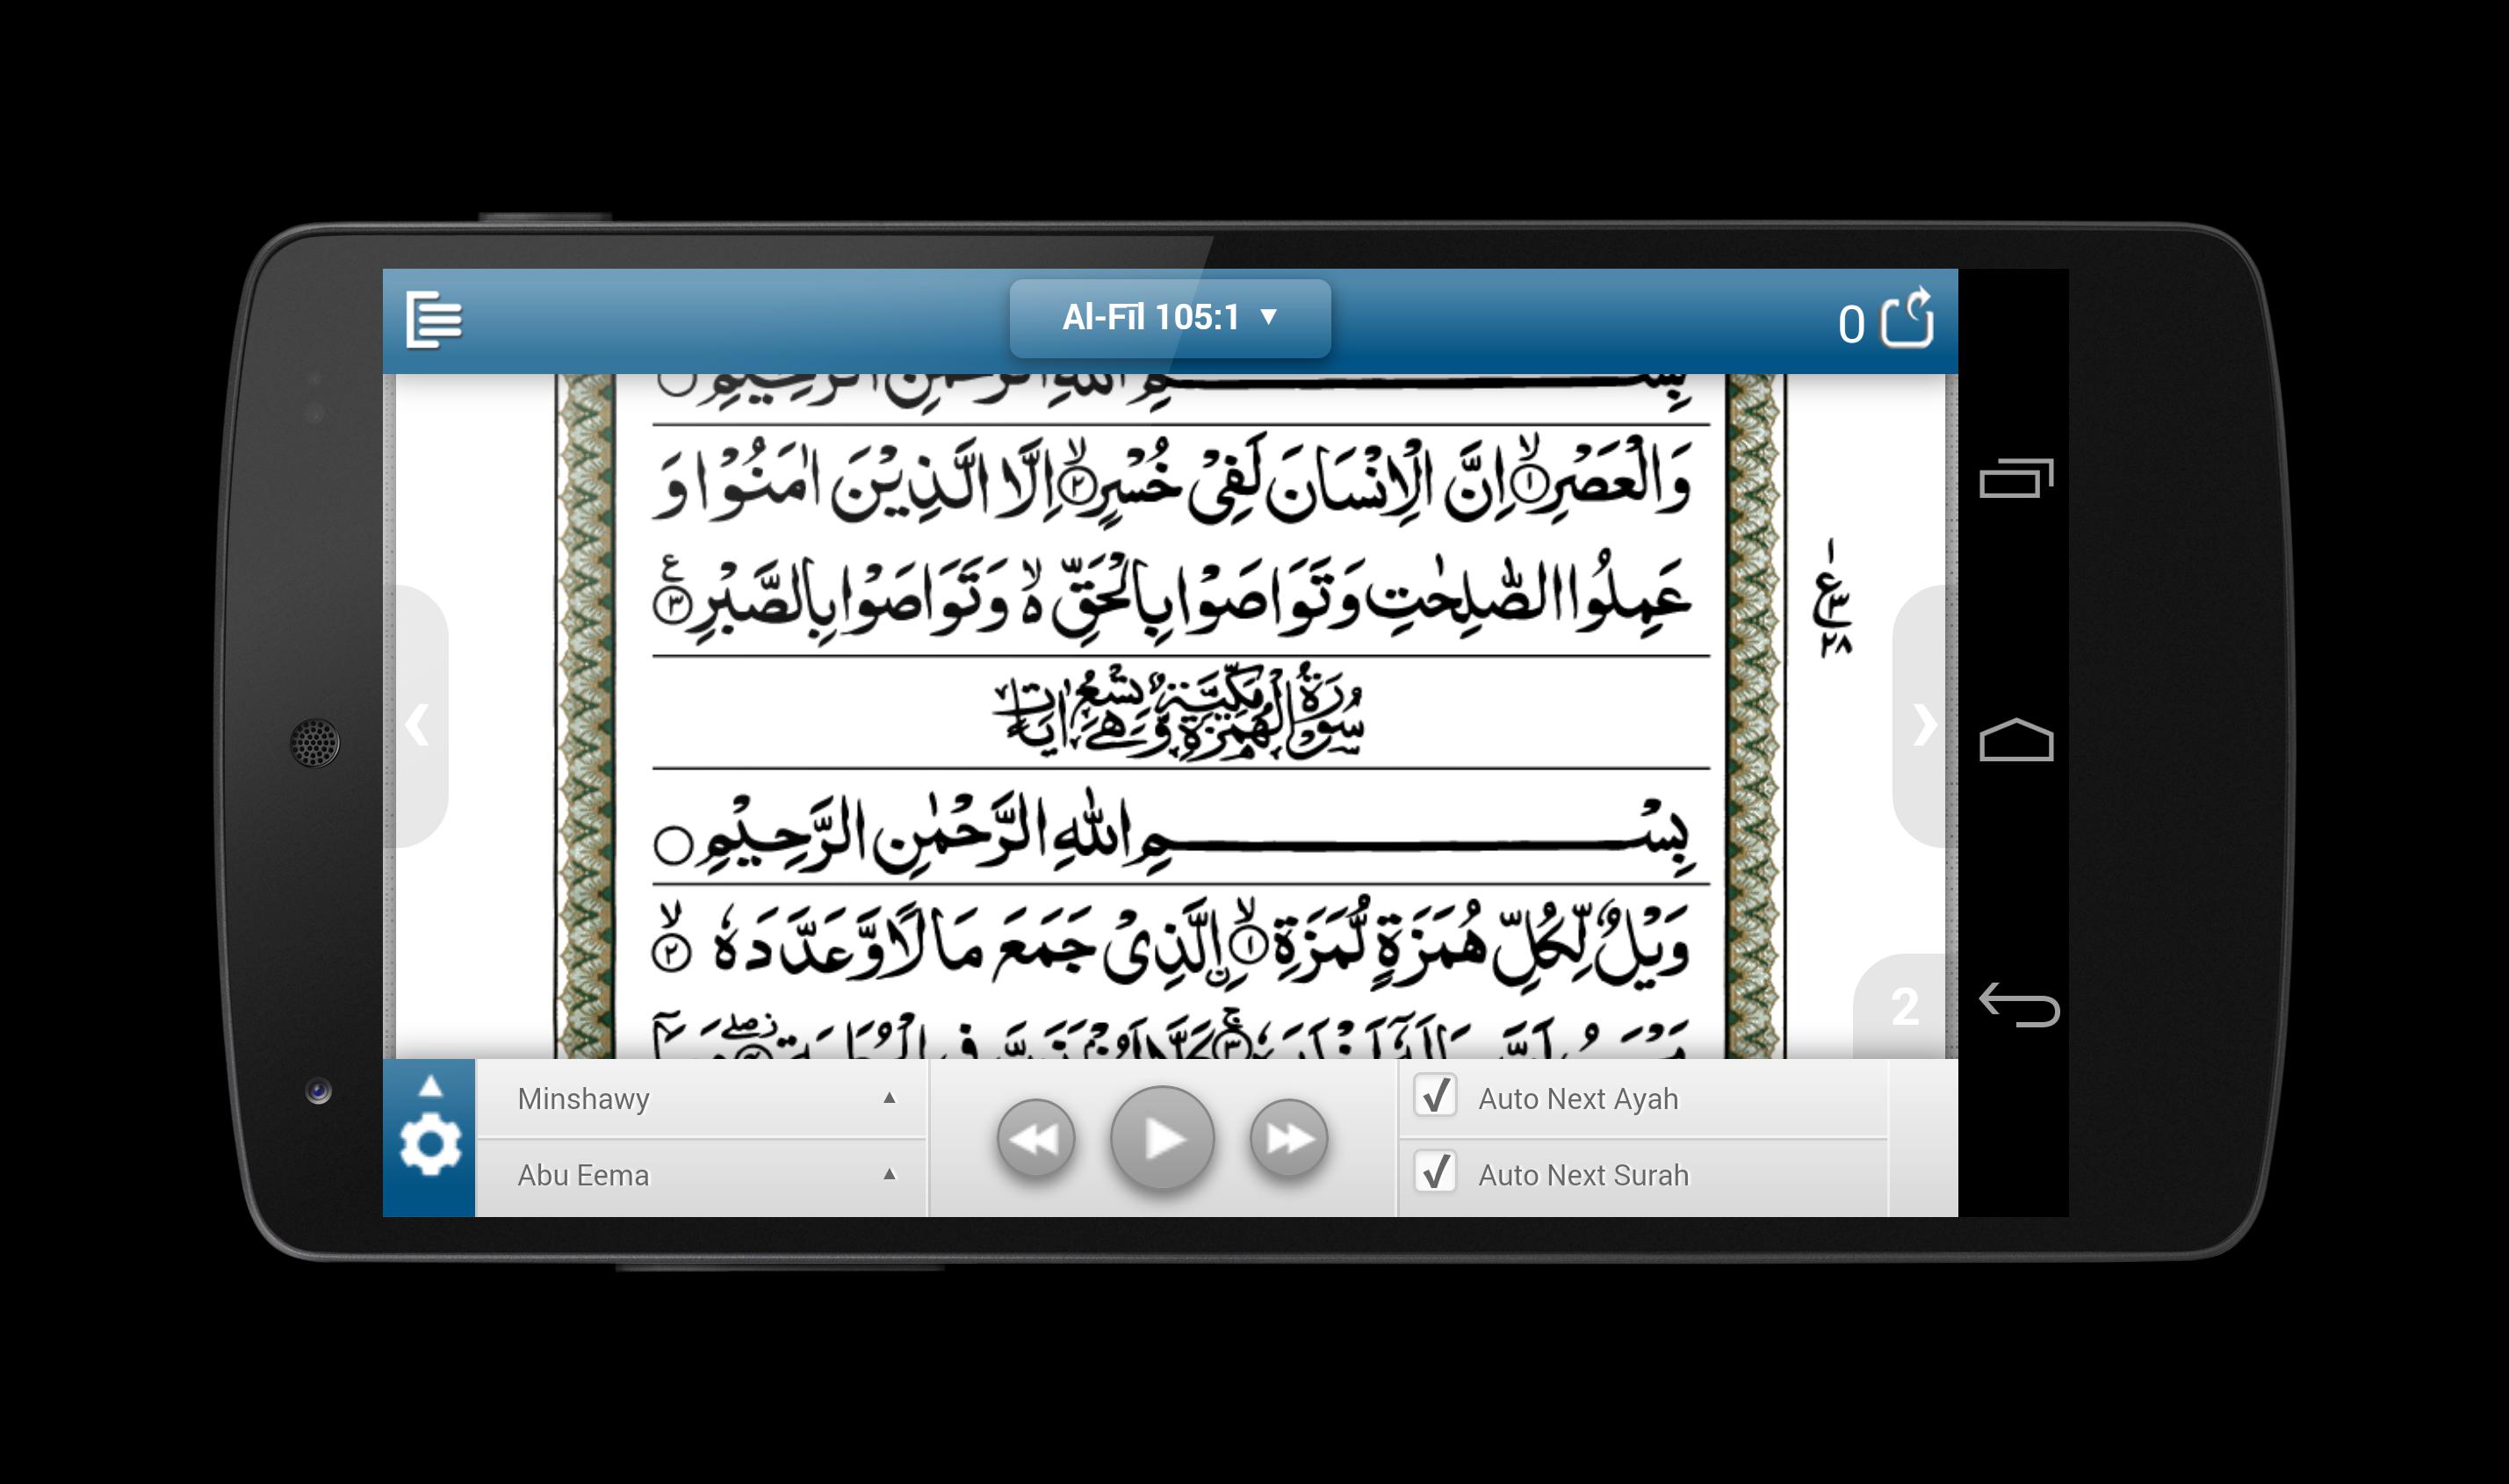 Al-Fīl 105:1 ▼
0
بِسْمِ اللهِ الرَّحْمٰنِ الرَّحِيْمِ
وَالْعَصْرِ ۙ﴿۱﴾ اِنَّ الْاِنْسَانَ لَفِيْ خُسْرٍ ۙ﴿۲﴾ اِلَّا الَّذِيْنَ اٰمَنُوْا وَ
عَمِلُوا الصّٰلِحٰتِ وَتَوَاصَوْا بِالْحَقِّ ۙ۬ وَتَوَاصَوْا بِالصَّبْرِ ﴿۳﴾ ع
۱
ع ۳
۲۸
سُوْرَةُ الْهُمَزَةِ مَكِّيَّةٌ وَّهِيَ تِسْعُ اٰيَاتٍ
بِسْمِ اللهِ الرَّحْمٰنِ الرَّحِيْمِ
وَيْلٌ لِّكُلِّ هُمَزَةٍ لُّمَزَةِ ۙ﴿۱﴾ اِۨلَّذِيْ جَمَعَ مَالًا وَّعَدَّدَهٗ ۙ﴿۲﴾
2
Minshawy
Abu Eema
Auto Next Ayah
Auto Next Surah